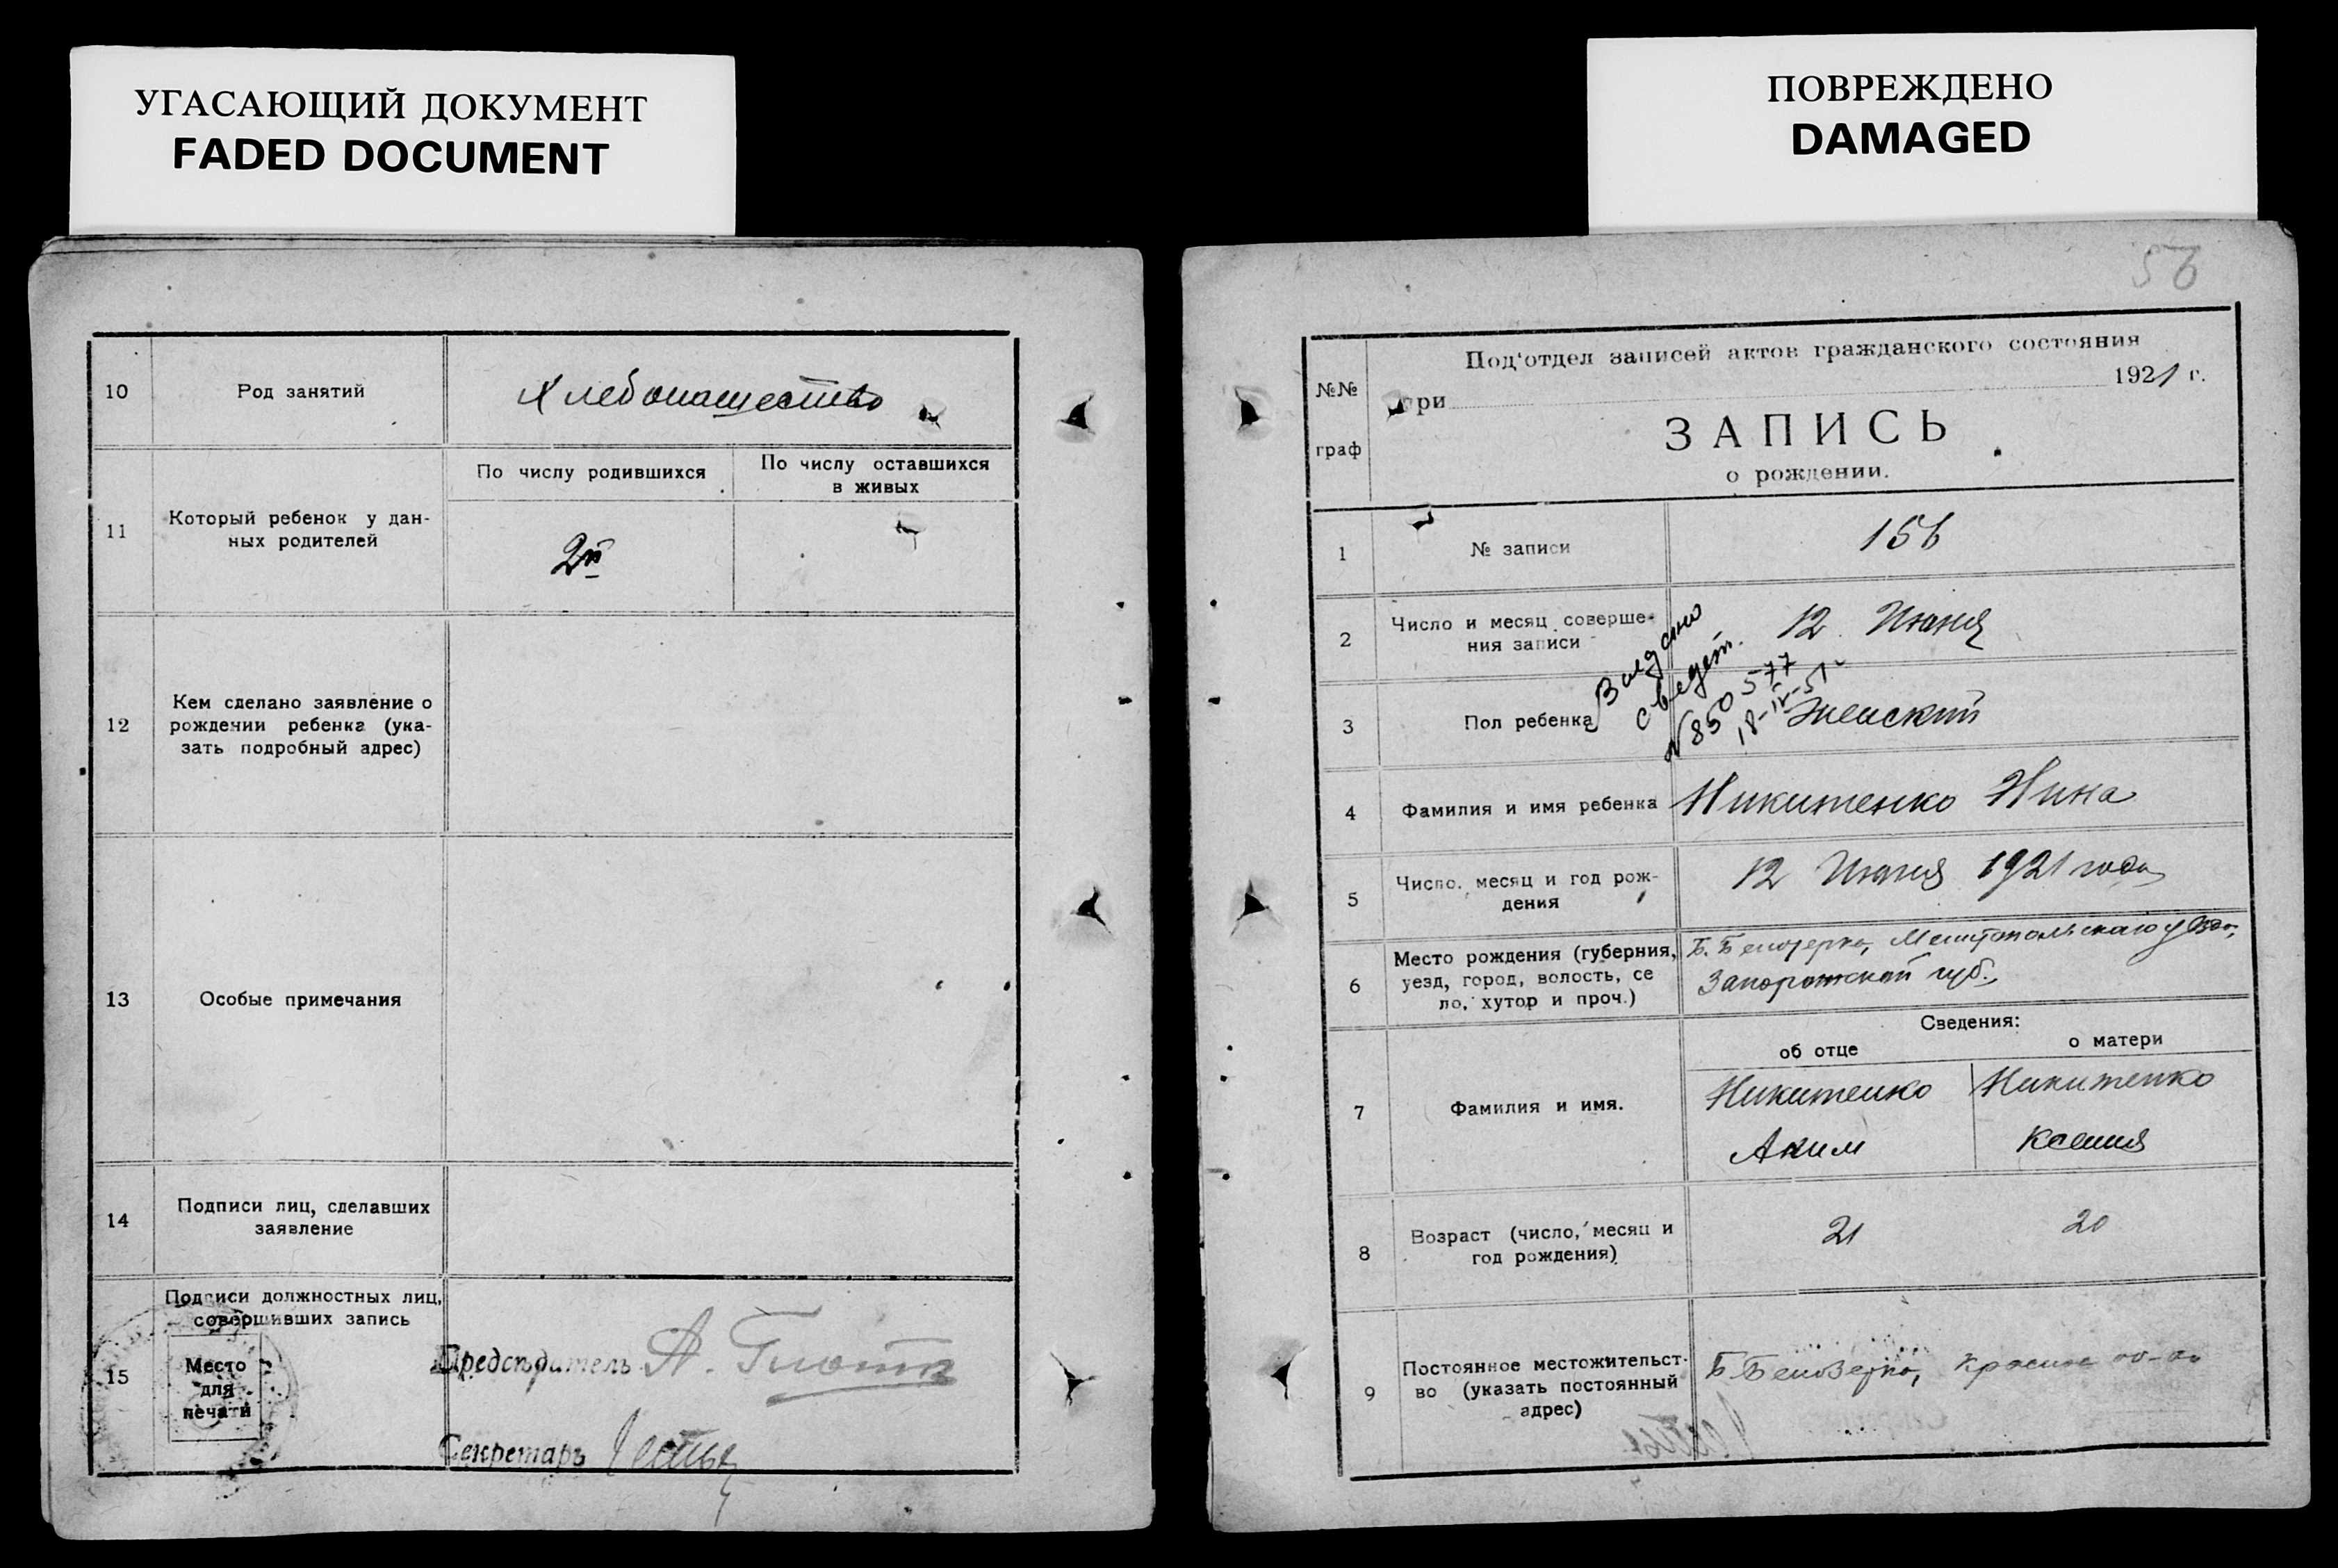 УГАСАЮЩИЙ ДОКУМЕНТ
FADED DOCUMENT
10
Род занятий
Хлебопашество
11
Который ребенок у дан-
ных родителей
По числу родившихся
По числу оставшихся
в живых
2й
12
Кем сделано заявление о
рождении ребенка (ука-
зать подробный адрес)
13
Особые примечания
14
Подписи лиц, сделавших
заявление
15
Подписи должностных лиц,
совершивших запись
Место
для
печати
Председатель А.
Секретарь
ПОВРЕЖДЕНО
DAMAGED
56
№№
граф
Под‘отдел записей актов гражданского состояния
при 1921 г.
ЗАПИСЬ
о рождении.
1
№ записи
156
2
Число и месяц соверше-
ния записи
12 Июня
Выдано
свидет.
№850577
18-IV-51г
3
Пол ребенка
Женский
4
Фамилия и имя ребенка
Никитенко Нина
5
Число, месяц и год рож-
дения
12 Июня 1921 года
6
Место рождения (губерния,
уезд, город, волость, се
ло, хутор и проч.)
Б. Белозерка, Мелитопольскаго уезда,
Запорожской губ.
Сведения:
об отце
о матери
7
Фамилия и имя.
Никитенко
Аким
Никитенко
Ксения
8
Возраст (число, месяц и
год рождения)
21
20
9
Постоянное местожительст-
во (указать постоянный
адрес)
Б Белозерка,